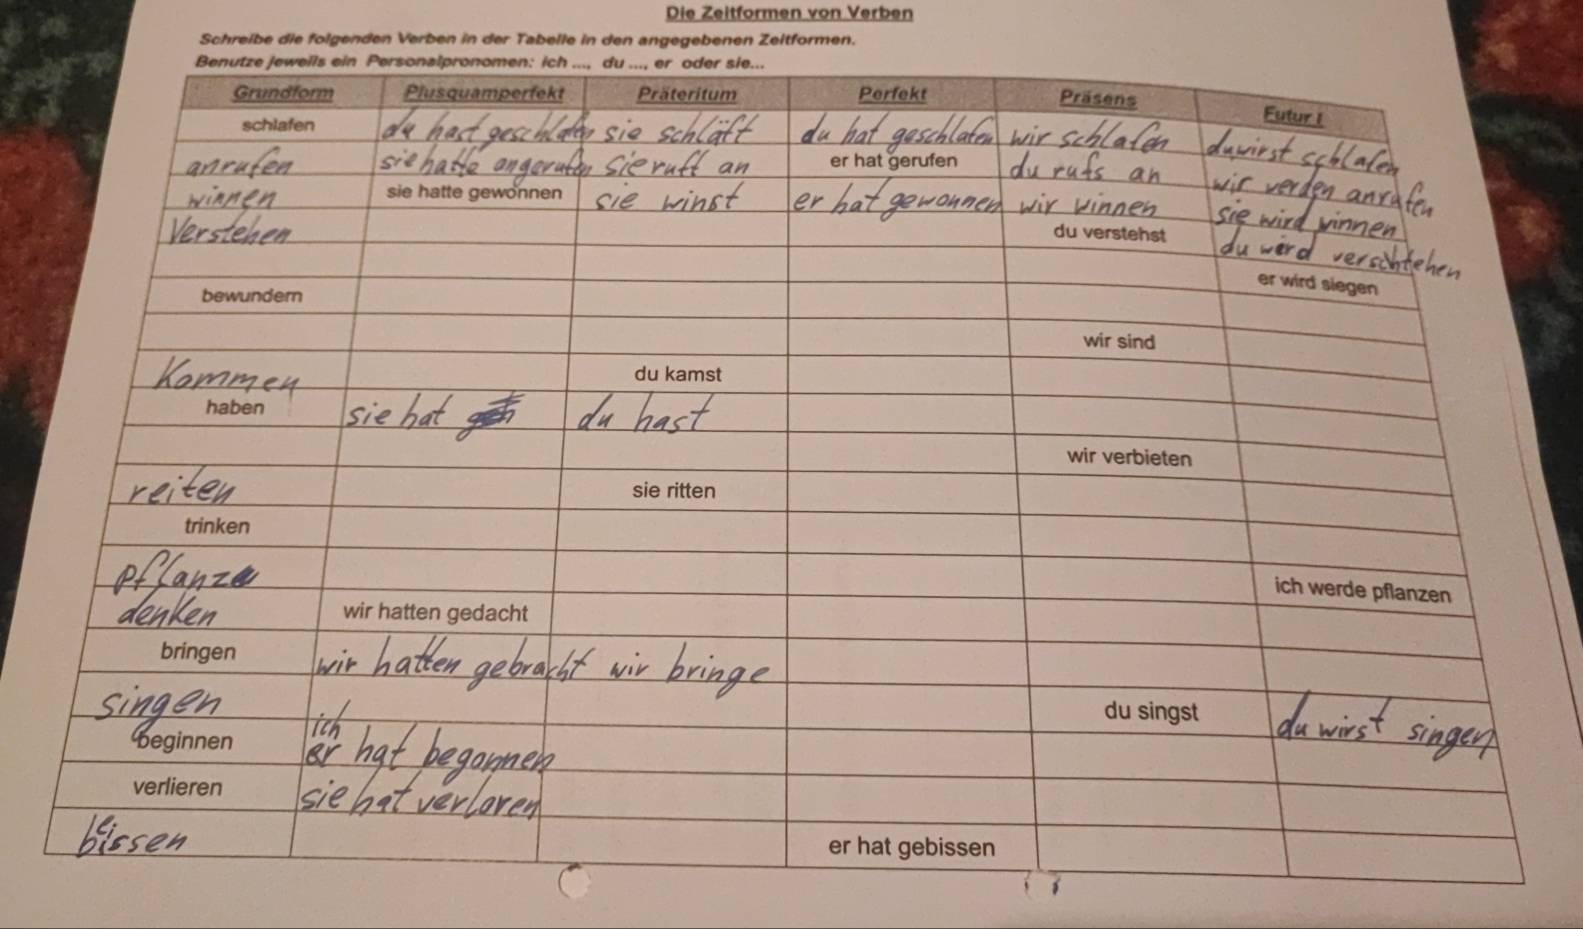 Die Zeitformen von Verben
Schreibe die folgenden Verben in der Tabelle in den angegebenen Zeitformen.
Benutze jeweils ein Personalpronomen: ich ..., du ..., er oder sie...
Grundform Plusquamperfekt Präteritum Perfekt Präsens Futur I
schlafen du hast geschlafen sie schläft du hat geschlafen wir schlafen du wirst schlafen
anrufen sie hatte angerufen sie ruft an er hat gerufen du rufs an wir werden anrufen
winnen sie hatte gewonnen sie winst er hat gewonnen wir vinnen sie wird vinnen
Verstehen du verstehst du werd verschtehen
er wird siegen
bewundern
wir sind
Kommen du kamst
haben sie hat du hast
wir verbieten
reiten sie ritten
trinken
pflanze ich werde pflanzen
denken wir hatten gedacht
bringen wir hatten gebracht wir bringe
singen du singst du wirst singen
beginnen ich er hat begonnen
verlieren sie hat verloren
beissen er hat gebissen